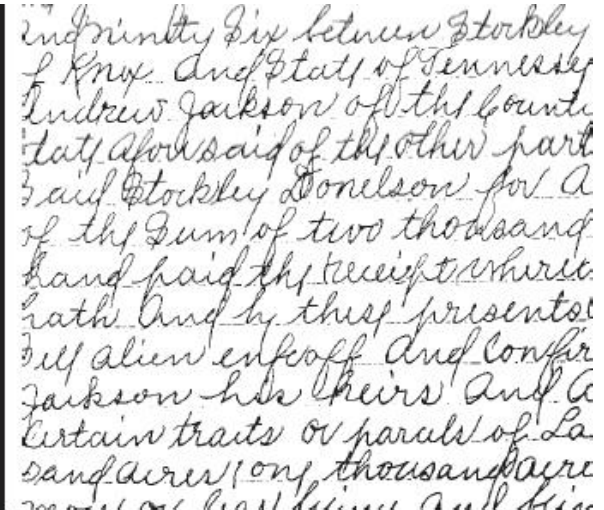 and ninety Six between Stockley
of Knox and State of Tennessee
Andrew Jackson of the Count
State aforesaid of the other part
Said Stockley Donelson for a
of the Sum of two thousand
hand paid the receipt where
hath and by these presents
Sell alien enfeoff and Confir
Jackson his heirs and a
Certain tracts or parcels of La
sand acres (one thousand acre
more or less lying and bein